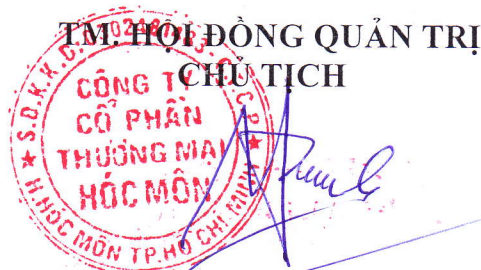 TM. HỘI ĐỒNG QUẢN TRỊ
CHỦ TỊCH
CÔNG TY
CỔ PHẦN
THƯƠNG MẠI
HÓC MÔN
H.HÓC MÔN TP.HỒ CHÍ MINH